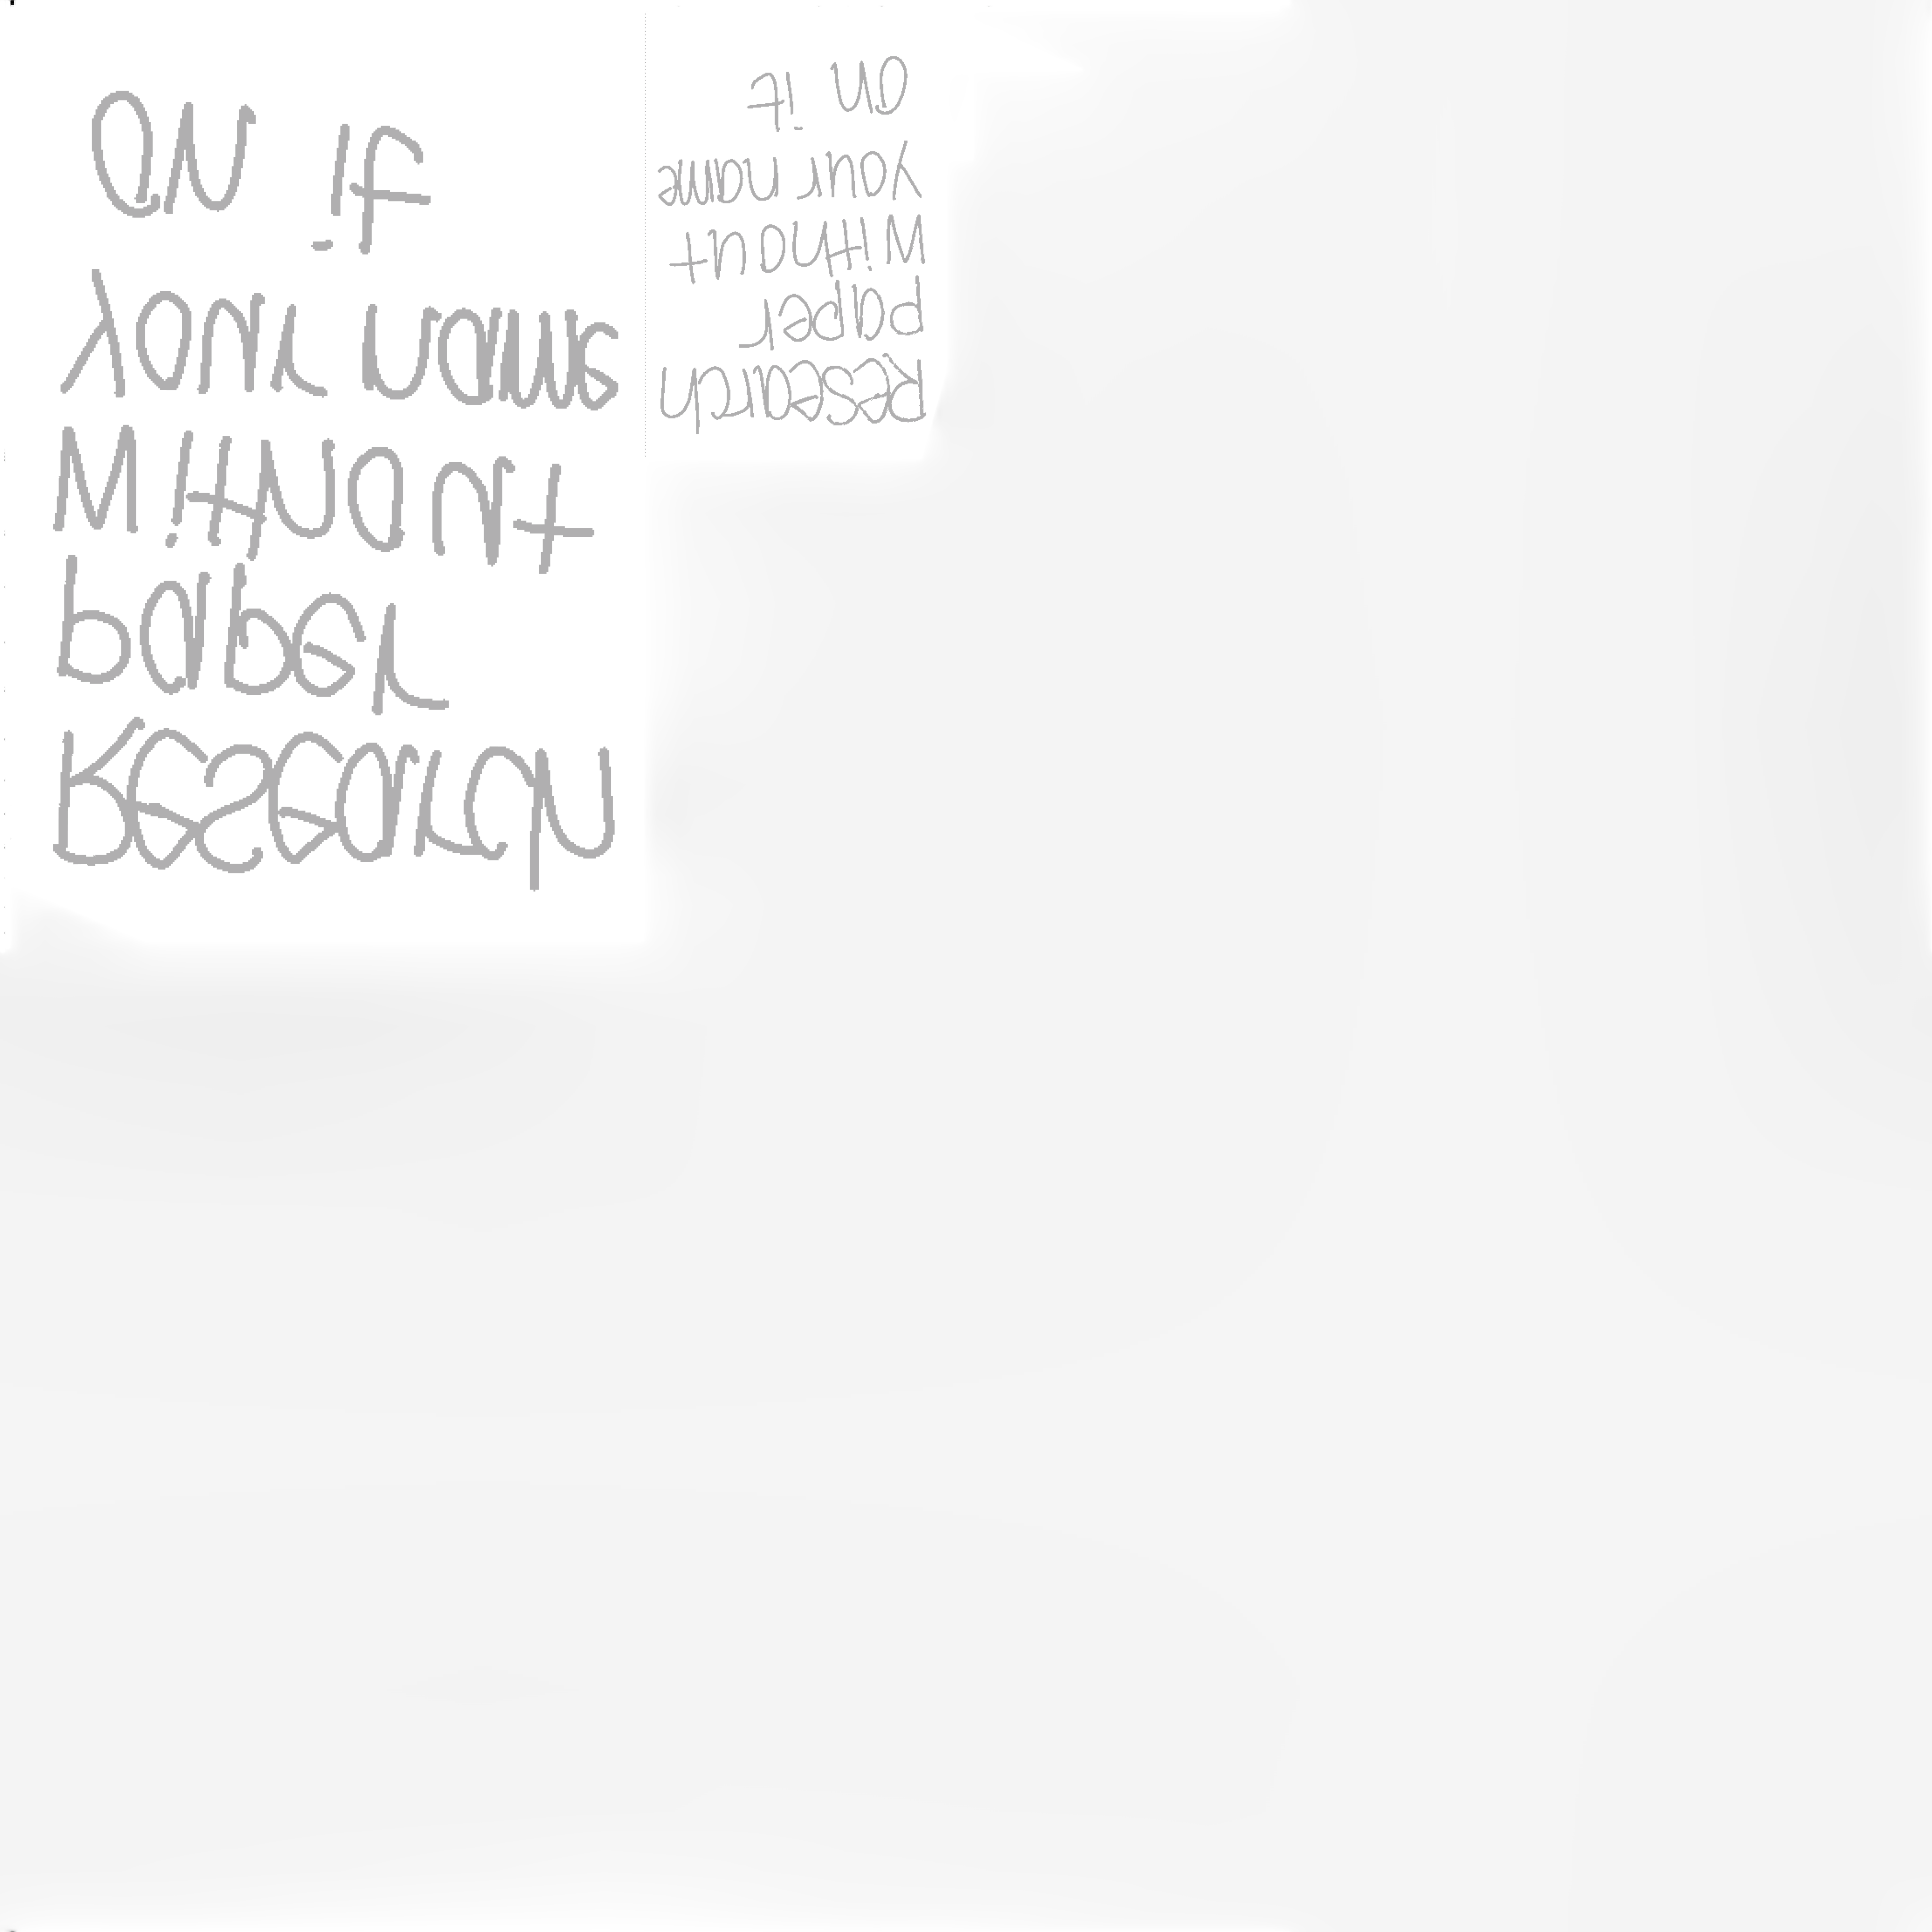 Research
paper
Without
Your name
on it
Research
paper
Without
Your name
on it